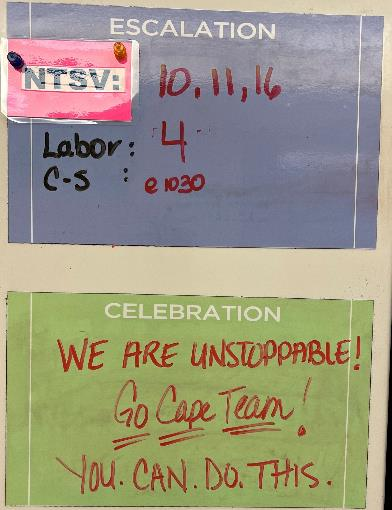 ESCALATION
NTSV: 10, 11, 16
Labor: 4
C-S : @ 1030
CELEBRATION
WE ARE UNSTOPPABLE!
Go Cape Team!
YOU. CAN. DO. THIS.